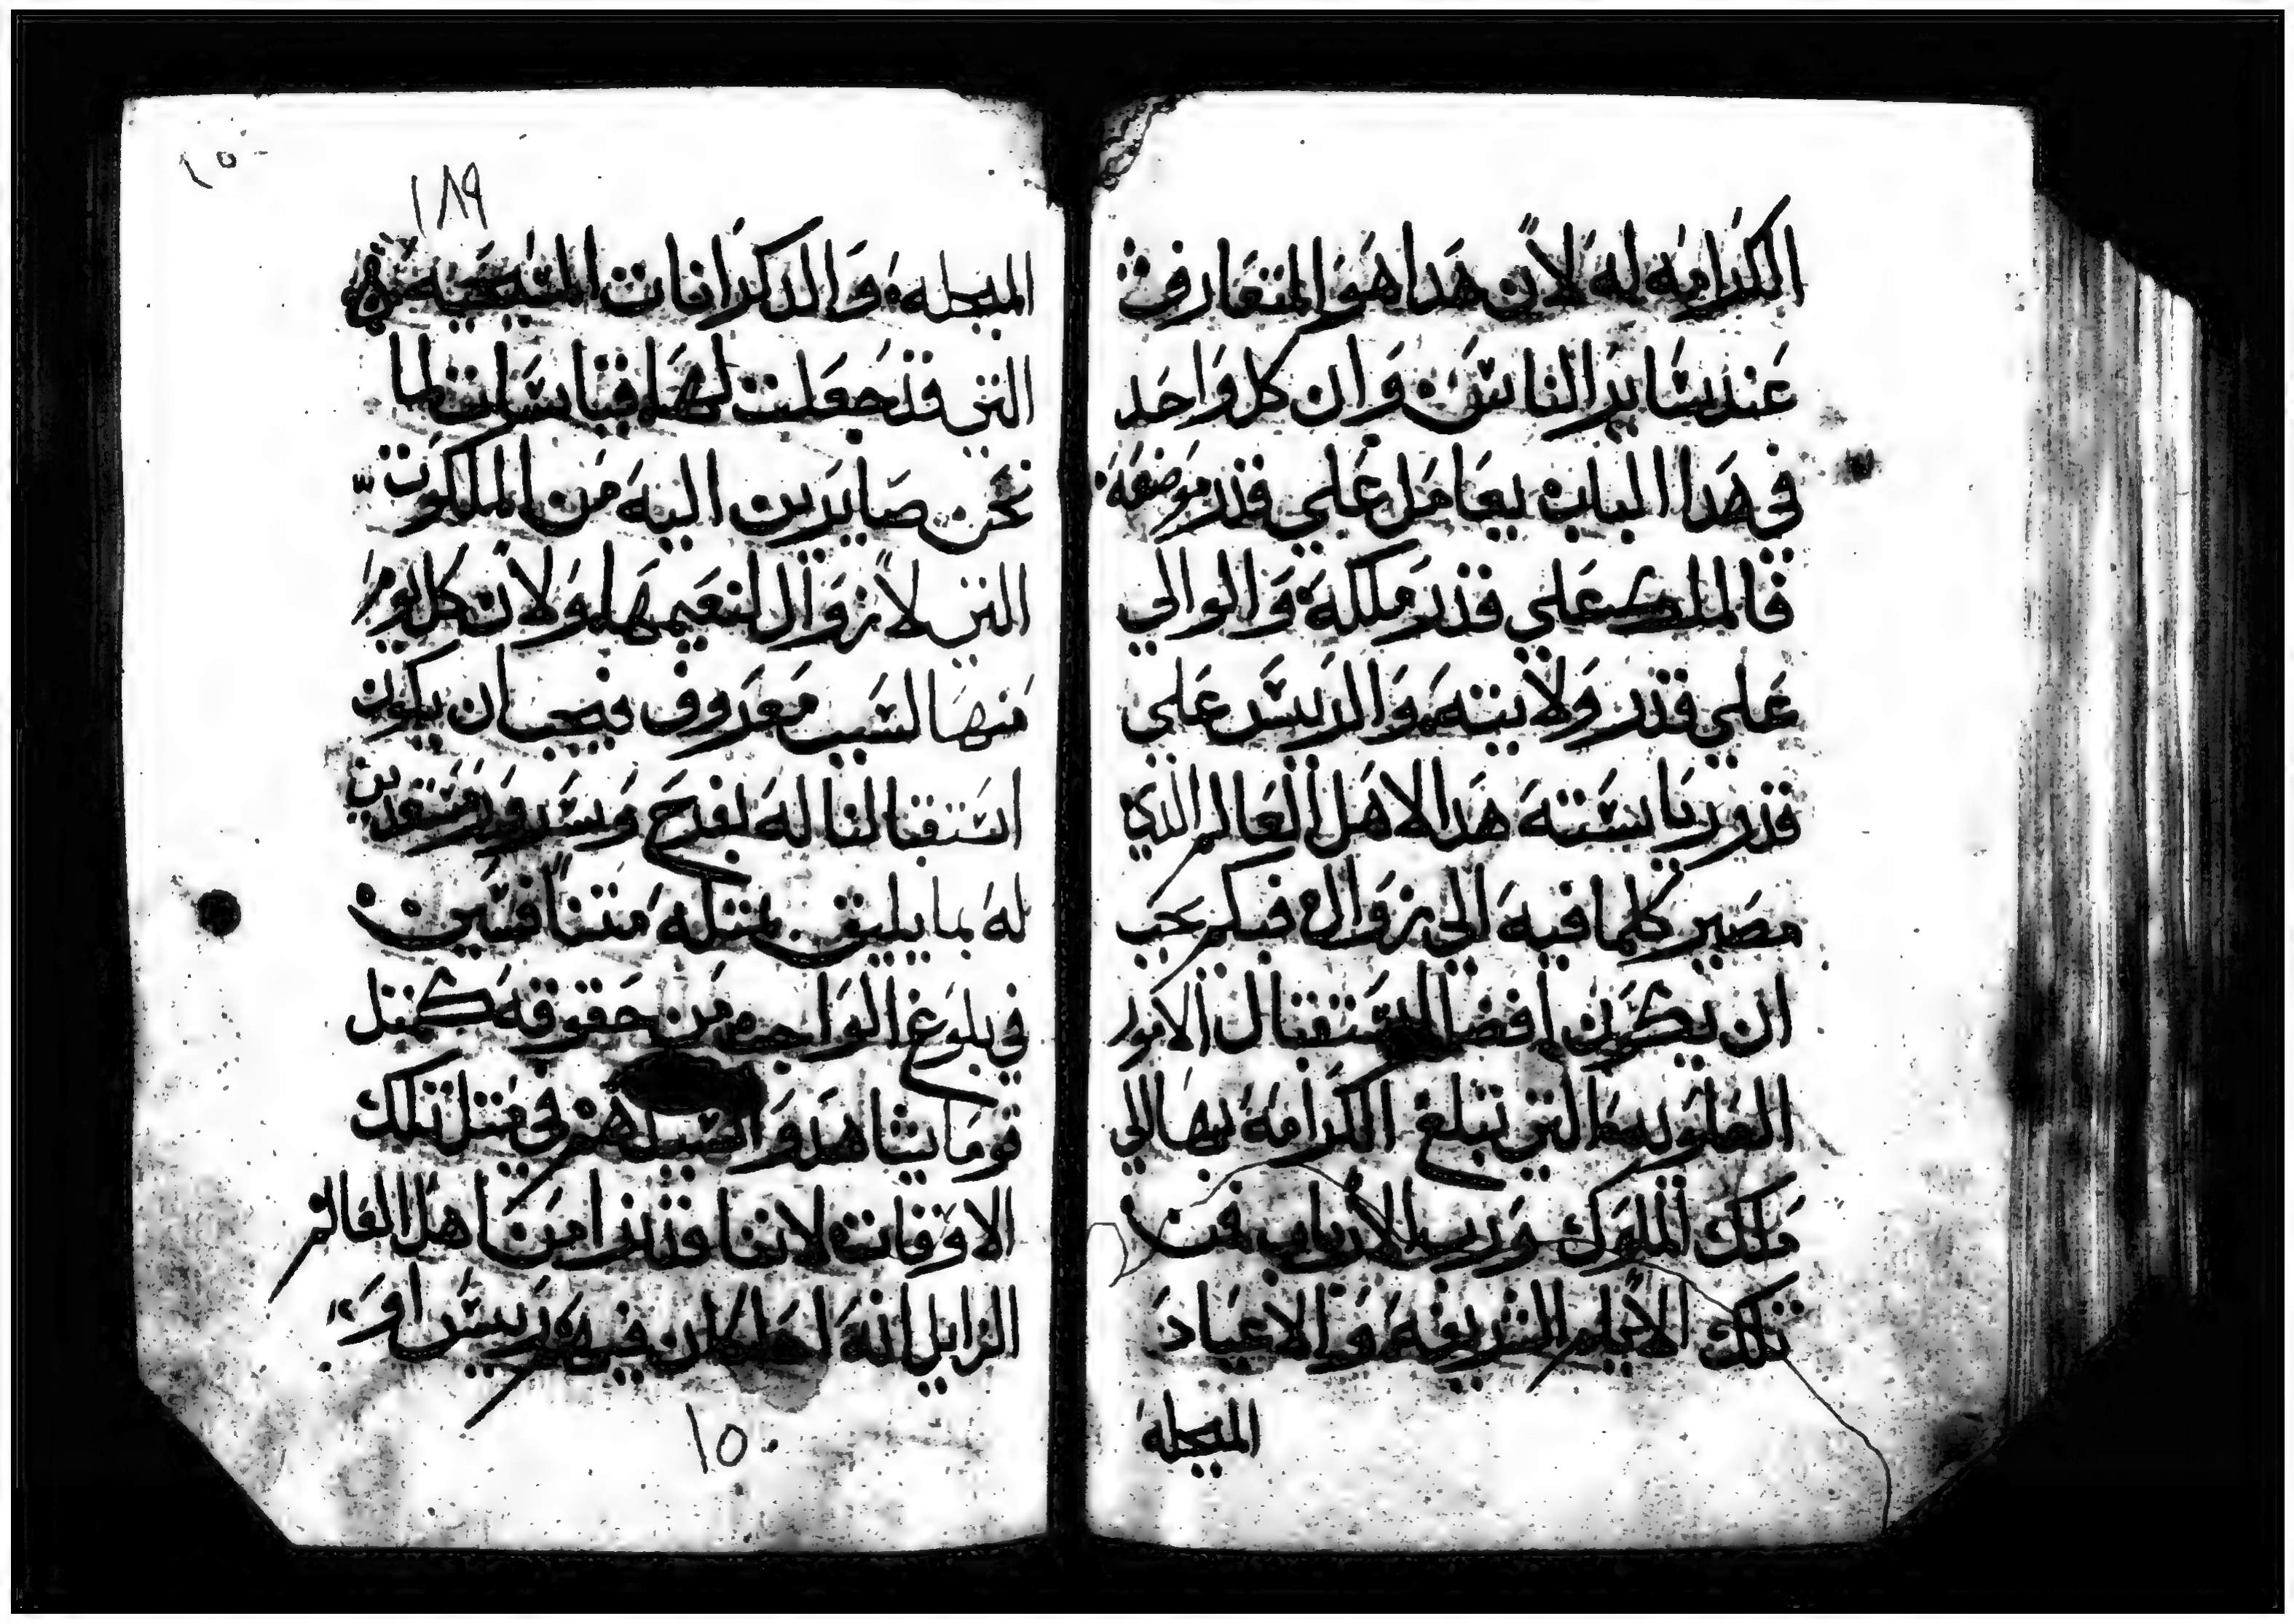 الكرامه له لان هدا هو المتعارف
عند ساير الناس وان كل واحد
في هدا الباب يعامل علي قدر موضعه
فالملك علي قدر ملكه والوالي
علي قدر ولايته والريس علي
قدر رياسته هدا لاهل العالم الذي
مصير كلما فيه الى زوال فبكم يجب
ان يكون افضل استقبال الامور
العلويه التي تبلغ الكرامه بها الي
ملك الملوك ورب الارباب فمن
تلك الايام الشريفه والاعياد
المبجله
١٥٠
١٨٩
المبجله والدكرانات المسيحيه
التي قد جعلت لها قياسات لما
نحن صايرين اليه من الملكوت
التي لا زوال لنعيمها ولان كل يوم
منها لسبب معروف فيجب ان يكون
استقبالنا له بفرح وسرور مستعدين
له بما يليق بمثله متنافسين
في بلوغ الواجب من حقوقه كمثل
قوما يشاهدوا السبيل هم في مثل تلك
الاوقات لاننا قد نرا من اهل العالم
الزايل انه لما كان فيه ريس او
١٥٠